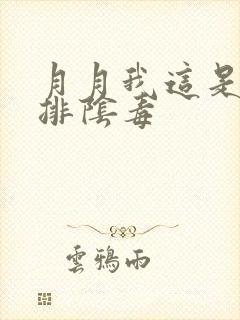 月月我這是
排陰毒
雲鴉雨